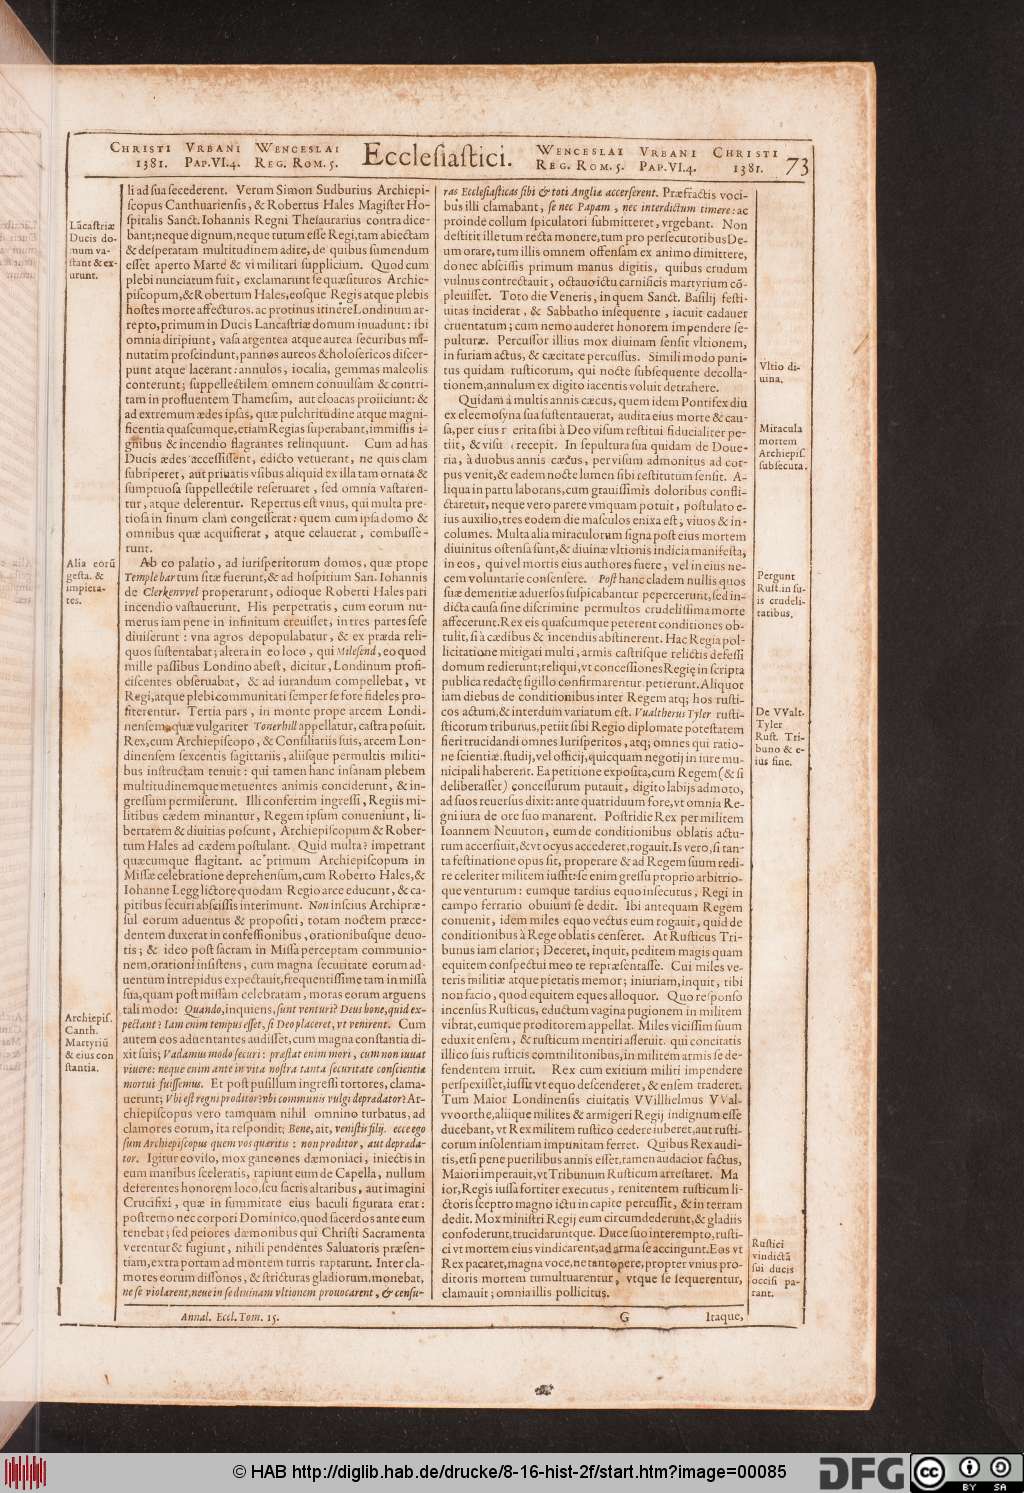 CHRISTI VRBANI WENCESLAI Ecclesiastici. WENCESLAI VRBANI CHRISTI 73
1381. PAP. VI. 4. REG. ROM. 5. REG. ROM. 5. PAP. VI. 4. 1381.
li ad sua secederent. Verum Simon Sudburius Archiepi-
scopus Canthuariensis, & Robertus Hales Magister Ho-
spitalis Sanct. Iohannis Regni Thesaurarius contra dice-
bant; neque dignum, neque tutum esse Regi, tam abiectam
& desperatam multitudinem adire, de quibus sumendum
esset aperto Marte & vi militari supplicium. Quod cum
plebi nunciatum fuit, exclamarunt se quæsituros Archie-
piscopum, & Robertum Hales, eosque Regis atque plebis
hostes morte affecturos. ac protinus itinere Londinum ar-
repto, primum in Ducis Lancastriæ domum inuadunt: ibi
omnia diripiunt, vasa argentea atque aurea securibus mi-
nutatim proscindunt, pannos aureos & holosericos discer-
punt atque lacerant: annulos, iocalia, gemmas maleolis
conterunt; suppellectilem omnem conuulsam & contri-
tam in profluentem Thamesim, aut cloacas proiiciunt: &
ad extremum ædes ipsas, quæ pulchritudine atque magni-
ficentia quascumque, etiam Regias superabant, immissis i-
gnibus & incendio flagrantes relinquunt. Cum ad has
Ducis ædes accessissent, edicto vetuerant, ne quis clam
subriperet, aut priuatis vsibus aliquid ex illa tam ornata &
sumptuosa suppellectile reseruaret, sed omnia vastaren-
tur, atque delerentur. Repertus est vnus, qui multa pre-
tiosa in sinum clam congesserat: quem cum ipsa domo &
omnibus quæ acquisierat, atque celauerat, combusse-
runt.
Ab eo palatio, ad iurisperitorum domos, quæ prope
Temple bar tum sitæ fuerunt, & ad hospitium San. Iohannis
de Clerkenvvel properarunt, odioque Roberti Hales pari
incendio vastauerunt. His perpetratis, cum eorum nu-
merus iam pene in infinitum creuisset, in tres partes sese
diuiserunt: vna agros depopulabatur, & ex præda reli-
quos sustentabat; altera in eo loco, qui Milesend, eo quod
mille passibus Londino abest, dicitur, Londinum profi-
ciscentes obseruabat, & ad iurandum compellebat, vt
Regi, atque plebi communitati semper se fore fideles pro-
fiterentur. Tertia pars, in monte prope arcem Londi-
nensem, quæ vulgariter Tonerhill appellatur, castra posuit.
Rex, cum Archiepiscopo, & Consiliariis suis, arcem Lon-
dinensem sexcentis sagittariis, aliisque permultis militi-
bus instructam tenuit: qui tamen hanc insanam plebem
multitudinemque metuentes animis conciderunt, & in-
gressum permiserunt. Illi confertim ingressi, Regiis mi-
litibus cædem minantur, Regem ipsum conueniunt, li-
bertatem & diuitias poscunt, Archiepiscopum & Rober-
tum Hales ad cædem postulant. Quid multa? impetrant
quæcumque flagitant. ac primum Archiepiscopum in
Missæ celebratione deprehensum, cum Roberto Hales, &
Iohanne Legg lictore quodam Regio arce educunt, & ca-
pitibus securi abscissis interimunt. Non inscius Archipræ-
sul eorum aduentus & propositi, totam noctem præce-
dentem duxerat in confessionibus, orationibusque deuo-
tis; & ideo post sacram in Missa perceptam communio-
nem, orationi insistens, cum magna securitate eorum ad-
uentum intrepidus expectauit, frequentissime tam in missa
sua, quam post missam celebratam, moras eorum arguens
tali modo: Quando, inquiens, sunt venturi? Deus bone, quid ex-
pectant? Iam enim tempus esset, si Deo placeret, vt venirent. Cum
autem eos aduentantes audisset, cum magna constantia di-
xit suis; Vadamus modo securi: præstat enim mori, cum non iuuat
viuere: neque enim ante in vita nostra tanta securitate conscientiæ
mortui fuissemus. Et post pusillum ingressi tortores, clama-
uerunt; Vbi est regni proditor? vbi communis vulgi depradator? Ar-
chiepiscopus vero tamquam nihil omnino turbatus, ad
clamores eorum, ita respondit; Bene, ait, venistis filij. ecce ego
sum Archiepiscopus quem vos quæritis: non proditor, aut depræda-
tor. Igitur eo viso, mox ganeones dæmoniaci, iniectis in
eum manibus sceleratis, rapiunt eum de Capella, nullum
deferentes honorem loco, seu sacris altaribus, aut imagini
Crucifixi, quæ in summitate eius baculi figurata erat:
postremo nec corpori Dominico, quod sacerdos ante eum
tenebat; sed peiores dæmonibus qui Christi Sacramenta
verentur & fugiunt, nihili pendentes Saluatoris præsen-
tiam, extra portam ad montem turris raptarunt. Inter cla-
mores eorum dissonos, & stricturas gladiorum, monebat,
ne se violarent, neue in se diuinam vltionem prouocarent, & censu-
ras Ecclesiasticas sibi & toti Angliæ accerserent. Præfractis voci-
bus illi clamabant, se nec Papam, nec interdictum timere: ac
proinde collum spiculatori submitteret, vrgebant. Non
destitit ille tum recta monere, tum pro persecutoribus De-
um orare, tum illis omnem offensam ex animo dimittere,
donec abscissis primum manus digitis, quibus crudum
vulnus contrectauit, octauo ictu carnificis martyrium cō-
pleuisset. Toto die Veneris, in quem Sanct. Basilij festi-
uitas inciderat, & Sabbatho insequente, iacuit cadauer
cruentatum; cum nemo auderet honorem impendere se-
pulturæ. Percussor illius mox diuinam sensit vltionem,
in furiam actus, & cæcitate percussus. Simili modo puni-
tus quidam rusticorum, qui nocte subsequente decolla-
tionem, annulum ex digito iacentis voluit detrahere.
Quidam à multis annis cæcus, quem idem Pontifex diu
ex eleemosyna sua sustentauerat, audita eius morte & cau-
sa, per eius merita sibi à Deo visum restitui fiducialiter pe-
tiit, & visum recepit. In sepultura sua quidam de Doue-
ria, à duobus annis cæcus, per visum admonitus ad cor-
pus venit, & eadem nocte lumen sibi restitutum sensit. A-
liqua in partu laborans, cum grauissimis doloribus confli-
ctaretur, neque vero parere vmquam potuit, postulato e-
ius auxilio, tres eodem die masculos enixa est, viuos & in-
columes. Multa alia miraculorum signa post eius mortem
diuinitus ostensa sunt, & diuinæ vltionis indicia manifesta,
in eos, qui vel mortis eius authores fuere, vel in eius ne-
cem voluntarie consensere. Post hanc cladem nullis quos
suæ dementiæ aduersos suspicabantur pepercerunt, sed in-
dicta causa sine discrimine permultos crudelissima morte
affecerunt. Rex eis quascumque peterent conditiones ob-
tulit, si à cædibus & incendiis abstinerent. Hac Regia pol-
licitatione mitigati multi, armis castrisque relictis defessi
domum redierunt; reliqui, vt concessiones Regię in scripta
publica redactę sigillo confirmarentur petierunt. Aliquot
iam diebus de conditionibus inter Regem atq; hos rusti-
cos actum, & interdum variatum est. Vualtherus Tyler rusti-
sticorum tribunus, petiit sibi Regio diplomate potestatem
fieri trucidandi omnes Iurisperitos, atq; omnes qui ratio-
ne scientiæ, studij, vel officij, quicquam negotij in iure mu-
nicipali haberent. Ea petitione exposita, cum Regem (& si
deliberasset) concessurum putauit, digito labijs admoto,
ad suos reuersus dixit: ante quatriduum fore, vt omnia Re-
gni iura de ore suo manarent. Postridie Rex per militem
Ioannem Neuuton, eum de conditionibus oblatis actu-
rum accersiuit, & vt ocyus accederet, rogauit. Is vero, si tan-
ta festinatione opus sit, properare & ad Regem suum redi-
re celeriter militem iussit: se enim gressu proprio arbitrio-
que venturum: eumque tardius equo insecutus, Regi in
campo ferrario obuium se dedit. Ibi antequam Regem
conuenit, idem miles equo vectus eum rogauit, quid de
conditionibus à Rege oblatis censeret. At Rusticus Tri-
bunus iam elatior; Deceret, inquit, peditem magis quam
equitem conspectui meo te repræsentasse. Cui miles ve-
teris militiæ atque pietatis memor; iniuriam, inquit, tibi
non facio, quod equitem eques alloquor. Quo responso
incensus Rusticus, eductum vagina pugionem in militem
vibrat, eumque proditorem appellat. Miles vicissim suum
eduxit ensem, & rusticum mentiri asseruit. qui concitatis
illico suis rusticis commilitonibus, in militem armis se de-
fendentem irruit. Rex cum exitium militi impendere
perspexisset, iussit vt equo descenderet, & ensem traderet.
Tum Maior Londinensis ciuitatis VVillhelmus VVal-
vvoorthe, aliique milites & armigeri Regij indignum esse
ducebant, vt Rex militem rustico cedere iuberet, aut rusti-
corum insolentiam impunitam ferret. Quibus Rex audi-
tis, etsi pene puerilibus annis esset, tamen audacior factus,
Maiori imperauit, vt Tribunum Rusticum arrestaret. Ma
ior, Regis iussa fortiter executus, renitentem rusticum li-
ctoris sceptro magno ictu in capite percussit, & in terram
dedit. Mox ministri Regij eum circumdederunt, & gladiis
confoderunt, trucidaruntque. Duce suo interempto, rusti-
ci vt mortem eius vindicarent, ad arma se accingunt. Eos vt
Rex pacaret, magna voce, ne tantopere, propter vnius pro-
ditoris mortem tumultuarentur, vtque se sequerentur,
clamauit; omnia illis pollicitus.
Lācastriæ
Ducis do-
mum va-
stant & ex-
urunt.
Alia eorū
gesta. &
impieta-
tes.
Archiepis.
Canth.
Martyriū
& eius con
stantia.
Vltio di-
uina.
Miracula
mortem
Archiepis.
subsecuta.
Pergunt
Rust. in su-
is crudeli-
tatibus.
De VValt.
Tyler
Rust. Tri-
buno & e-
ius fine.
Rustici
vindictā
sui ducis
occisi pa-
rant.
Annal. Eccl. Tom. 15. G Itaque,
© HAB http://diglib.hab.de/drucke/8-16-hist-2f/start.htm?image=00085
DFG
CC BY SA